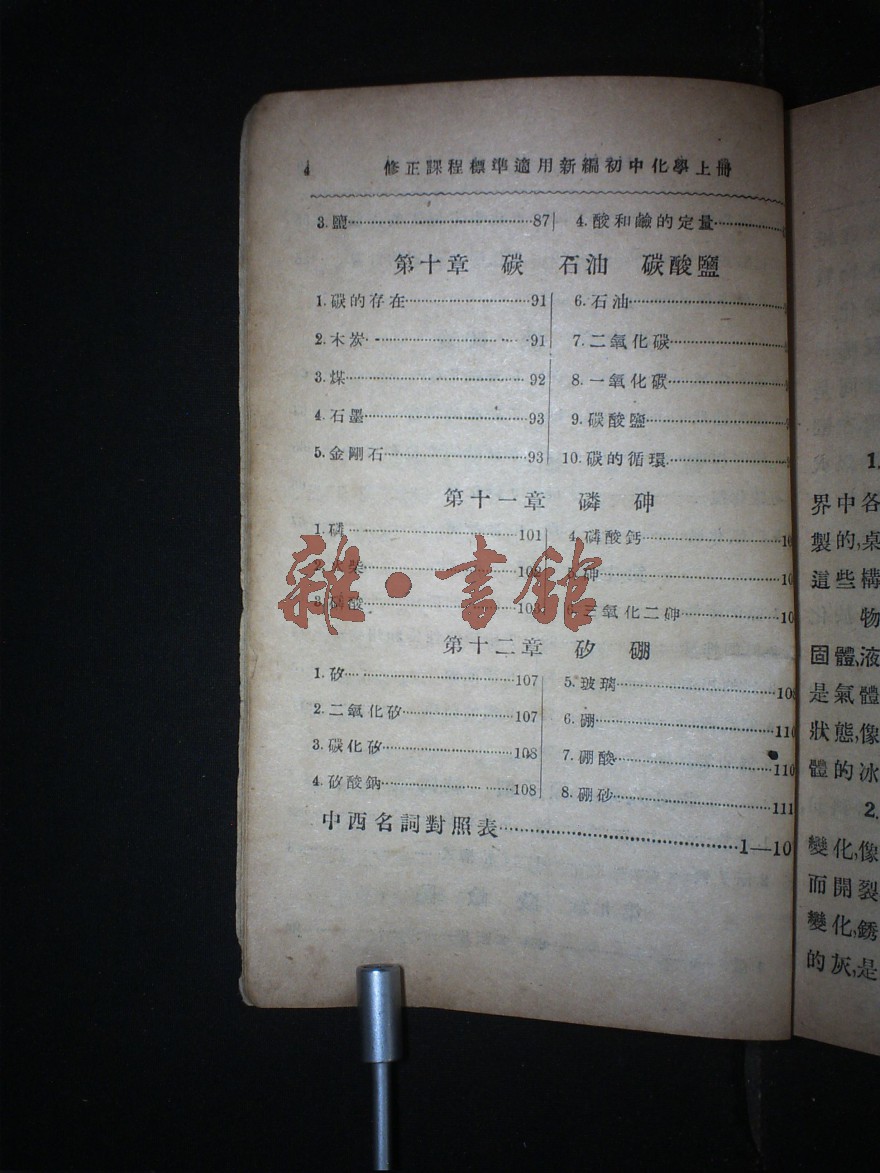 4 修正課程標準適用新編初中化學上冊
3. 鹽 87 4. 酸和鹼的定量
第十章 碳 石油 碳酸鹽
1. 碳的存在 91 6. 石油
2. 木炭 91 7. 二氧化碳
3. 煤 92 8. 一氧化碳
4. 石墨 93 9. 碳酸鹽
5. 金剛石 93 10. 碳的循環
第十一章 磷 砷
1. 磷 101 4. 磷酸鈣
柴 5. 砷
3. 磷酸 103 三氧化二砷
雜·書館
第十二章 矽 硼
1. 矽 107 5. 玻璃
2. 二氧化矽 107 6. 硼 110
3. 碳化矽 108 7. 硼酸 110
4. 矽酸鈉 108 8. 硼砂 111
中西名詞對照表 1—10
1.
界中各
製的,桌
這些構
物
固體,液
是氣體
狀態,像
體的冰
2.
變化,像
而開裂
變化,銹
的灰,是